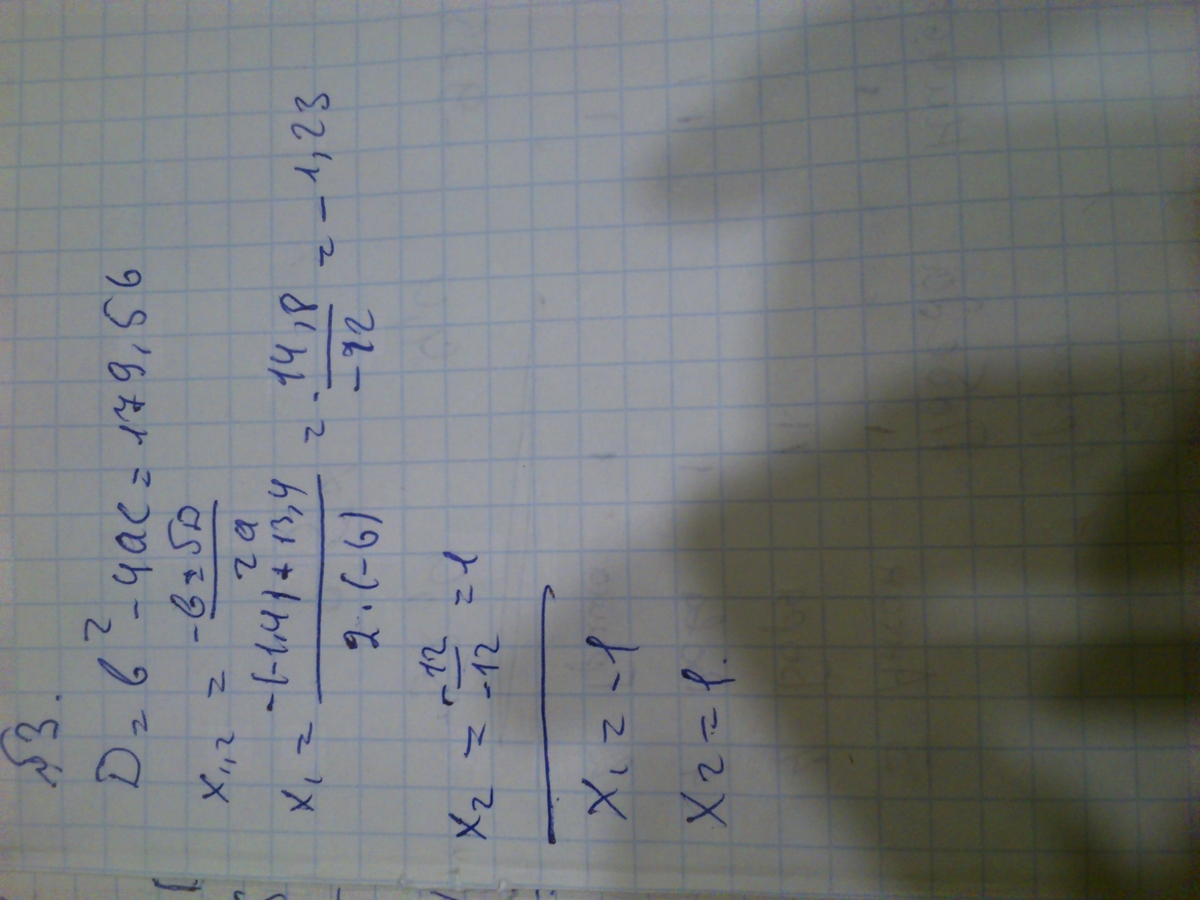 №3.
D = b² - 4ac = 179,56
x₁,₂ = (-b ± √D) / 2a
x₁ = (-(-1,4) + 13,4) / (2·(-6)) = 14,8 / -12 = -1,23
x₂ = -12 / -12 = 1
x₁ = -1
x₂ = 1.